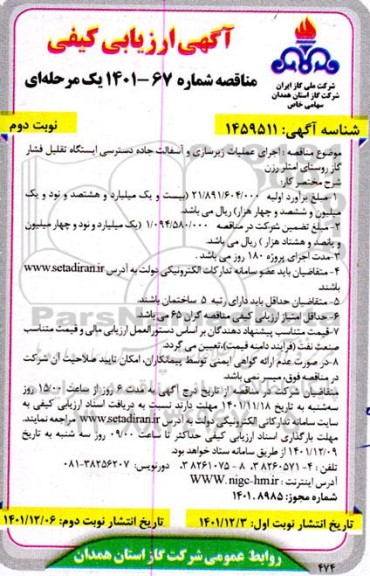 آگهی ارزیابی کیفی
مناقصه شماره ۶۷-۱۴۰۱ یک مرحله‌ای
شرکت ملی گاز ایران
شرکت گاز استان همدان
سهامی خاص
شناسه آگهی: ۱۴۵۹۵۱۱
نوبت دوم
موضوع مناقصه : اجرای عملیات زیرسازی و آسفالت جاده دسترسی ایستگاه تقلیل فشار
گاز روستای استلر رزن
شرح مختصر کار:
۱- مبلغ برآورد اولیه ۲۱/۸۹۱/۶۰۴/۰۰۰ (بیست و یک میلیارد و هشتصد و نود و یک
میلیون و ششصد و چهار هزار) ریال می باشد.
۲- مبلغ تضمین شرکت در مناقصه ۱/۰۹۴/۵۸۰/۰۰۰ (یک میلیارد و نود و چهار میلیون
و پانصد و هشتاد هزار ) ریال می باشد.
۳-مدت اجرای پروژه ۱۸۰ روز می باشد .
۴- متقاضیان باید عضو سامانه تدارکات الکترونیکی دولت به آدرس www.setadiran.ir
باشند.
۵- متقاضیان حداقل باید دارای رتبه ۵ ساختمان باشند.
۶- حداقل امتیاز ارزیابی کیفی مناقصه گران ۶۵ می باشد.
۷-قیمت متناسب پیشنهاد دهندگان بر اساس دستورالعمل ارزیابی مالی و قیمت متناسب
صنعت نفت (فرآیند دامنه قیمت)،تعیین می گردد.
۸-در صورت عدم ارائه گواهی ایمنی توسط پیمانکاران، امکان تایید صلاحیت آن شرکت
در مناقصه فوق،میسر نمی باشد.
متقاضیان شرکت در مناقصه از تاریخ درج آگهی به مدت ۶ روز از ساعت ۱۵/۰۰ روز
سه‌شنبه به تاریخ ۱۴۰۱/۱۱/۱۸ مهلت دارند نسبت به دریافت اسناد ارزیابی کیفی به
سایت سامانه تدارکاتی الکترونیکی دولت به آدرس www.setadiran.ir مراجعه نمایند.
مهلت بارگذاری اسناد ارزیابی کیفی حداکثر تا ساعت ۰۹/۰۰ روز سه شنبه به تاریخ
۱۴۰۱/۱۲/۰۹ از طریق سامانه ستاد خواهد بود.
تلفن : ۴-۳۸۲۶۰۵۷۱، ۸-۳۸۲۶۱۰۷۵ دورنویس: ۳۸۲۵۶۲۰۷-۰۸۱
آدرس اینترنت : WWW.nigc-hm.ir
شماره مجوز: ۱۴۰۱.۸۹۸۵
تاریخ انتشار نوبت اول: ۱۴۰۱/۱۲/۳
تاریخ انتشار نوبت دوم: ۱۴۰۱/۱۲/۰۶
روابط عمومی شرکت گاز استان همدان
۴۷۴